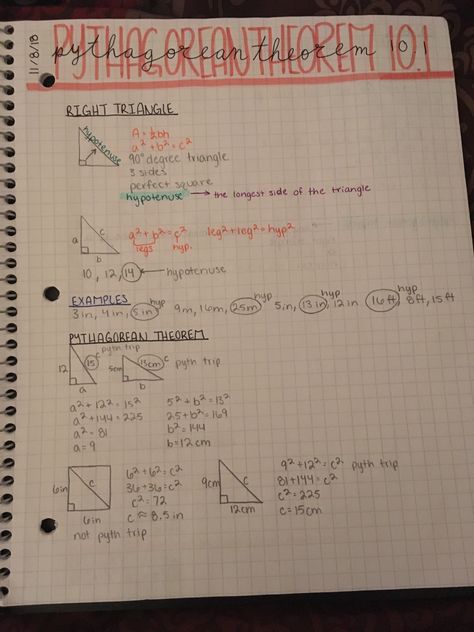 11/8/18
PYTHAGOREAN THEOREM 10.1
pythagorean theorem 10.1
RIGHT TRIANGLE
hypotenuse
A = ½bh
a² + b² = c²
90° degree triangle
3 sides
perfect square
hypotenuse → the longest side of the triangle
a c b
a² + b² = c² leg² + leg² = hyp²
legs hyp.
10, 12, 14 ← hypotenuse
EXAMPLES
3 in, 4 in, 5 in hyp 9m, 16m, 25m hyp 5in, 13 in hyp, 12 in 16 ft hyp, 8 ft, 15 ft
PYTHAGOREAN THEOREM
12 15 c a pyth trip
5cm 13cm c b pyth trip
a² + 12² = 15²
a² + 144 = 225
a² = 81
a = 9
5² + b² = 13²
25 + b² = 169
b² = 144
b = 12 cm
6in c 6in
not pyth trip
6² + 6² = c²
36 + 36 = c²
c² = 72
c ≈ 8.5 in
9cm c 12cm
9² + 12² = c² pyth trip
81 + 144 = c²
c² = 225
c = 15cm